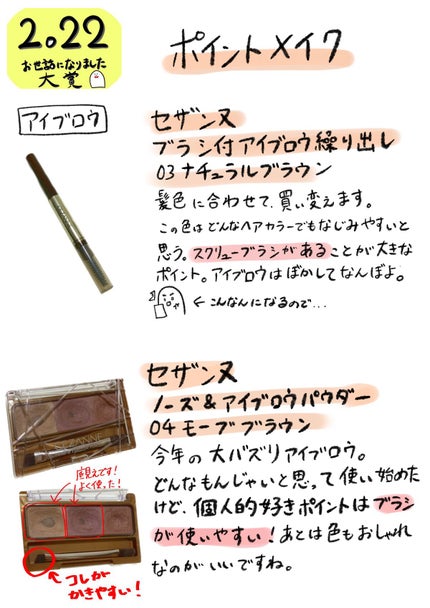 2022
お世話になりました
大賞
ポイントメイク
アイブロウ
セザンヌ
ブラシ付アイブロウ繰り出し
03 ナチュラルブラウン
髪色に合わせて、買い変えます。
この色はどんなヘアカラーでもなじみやすいと
思う。スクリューブラシがあることが大きな
ポイント。アイブロウはぼかしてなんぼよ。
←こんなんになるので…
セザンヌ
ノーズ&アイブロウパウダー
04 モーブブラウン
今年の大バズリアイブロウ。
どんなもんじゃいと思って使い始めた
けど、個人的好きポイントはブラシ
が使いやすい!あとは色もおしゃれ
なのがいいですね。
CEZANNE
底見えです!
よく使った!
コレが
かきやすい!